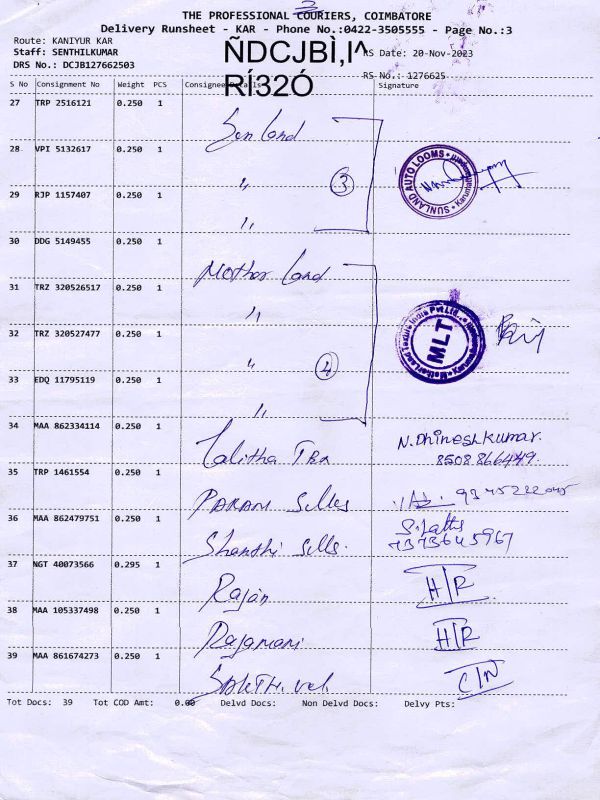 3
THE PROFESSIONAL COURIERS, COIMBATORE
Delivery Runsheet - KAR - Phone No.:0422-3505555 - Page No.:3
Route: KANIYUR KAR
Staff: SENTHILKUMAR RS Date: 20-Nov-2023
DRS No.: DCJB127662503
ÑDCJBÌ,I^
RÍ32Ó
RS No.: 1276625
S No Consignment No Weight PCS Consignee Details Signature
27 TRP 2516121 0.250 1 Sun Land
28 VPI 5132617 0.250 1 "
SUNLAND AUTO LOOMS
29 RJP 1157407 0.250 1 "
3
30 DDG 5149455 0.250 1 Mother Land
31 TRZ 320526517 0.250 1 "
32 TRZ 320527477 0.250 1 "
MLT
33 EDQ 11795119 0.250 1 "
4
34 MAA 862334114 0.250 1 Lalitha Tex N. Dhinesh Kumar.
8508866449.
35 TRP 1461554 0.250 1 PARANI Silks
36 MAA 862479751 0.250 1 Shanthi Sills.
7373645967
37 NGT 40073566 0.295 1 Rajan H/R
38 MAA 105337498 0.250 1 Rajamani H/R
39 MAA 861674273 0.250 1 C/N
Tot Docs: 39 Tot COD Amt: 0.00 Delvd Docs: Non Delvd Docs: Delvy Pts: